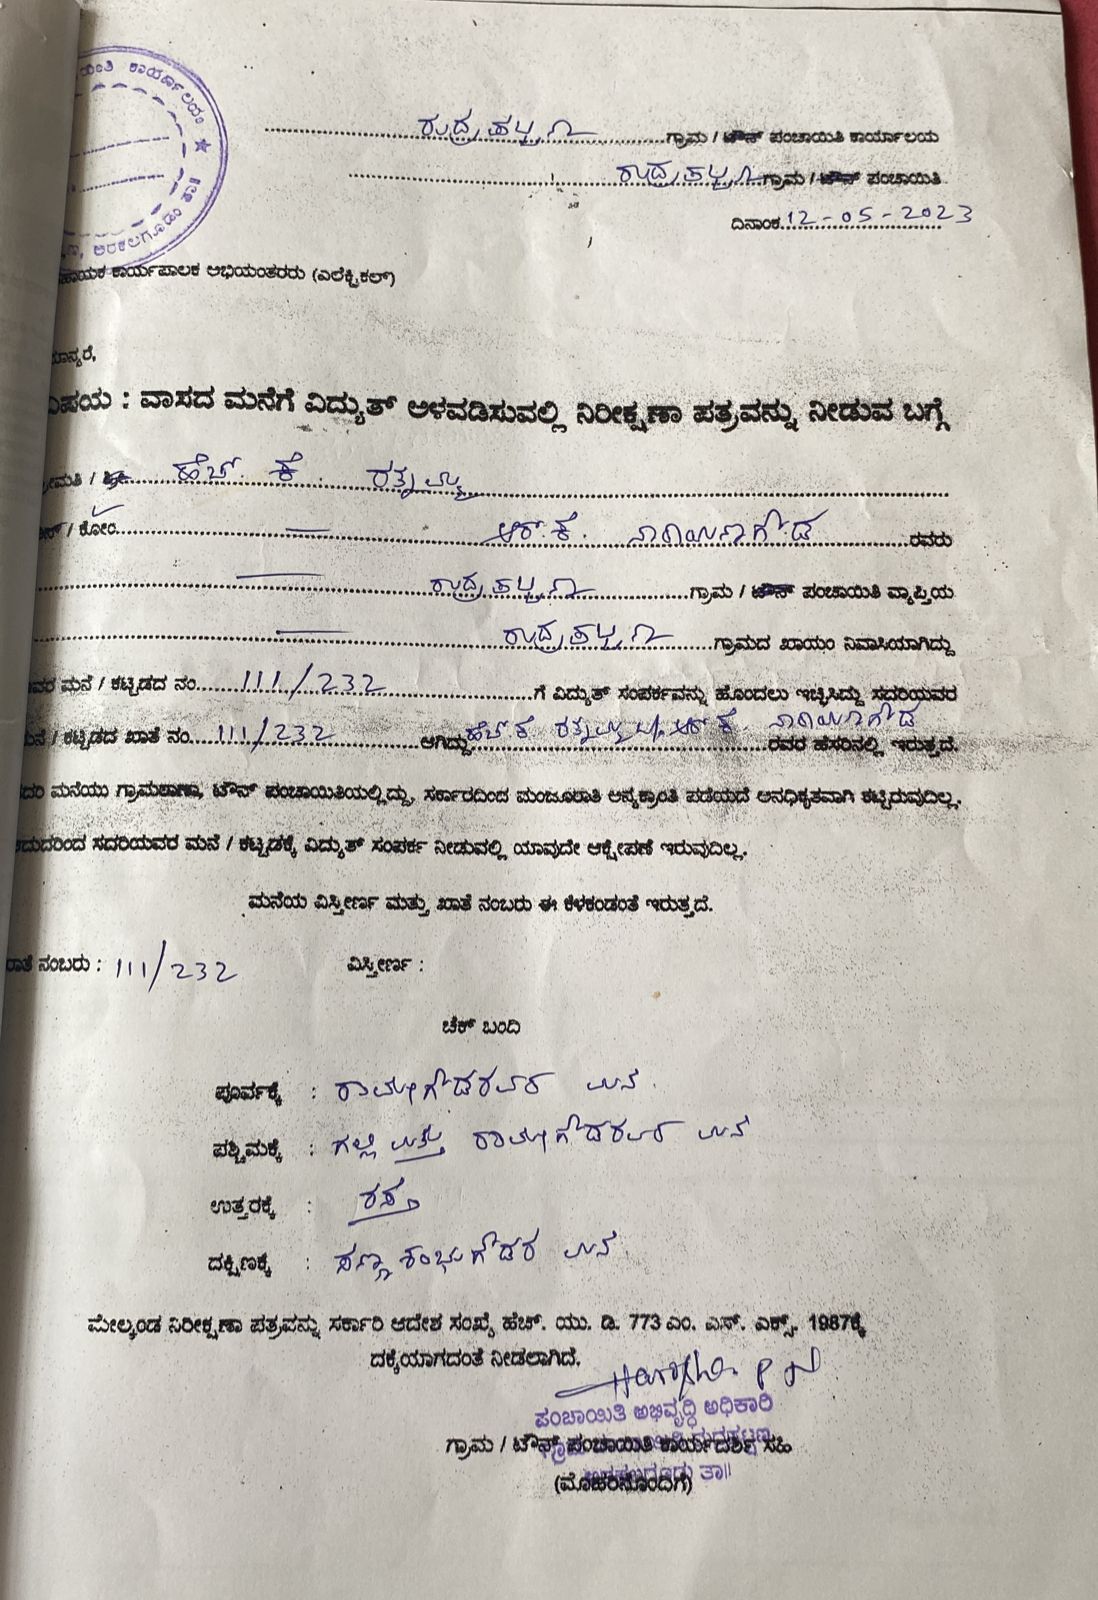 ಕಾರ್ಯಾಲಯ ★
ಅರಕಲಗೂಡು
ರುದ್ರಪಟ್ಟಣ ಗ್ರಾಮ / ಟೌನ್ ಪಂಚಾಯಿತಿ ಕಾರ್ಯಾಲಯ
ರುದ್ರಪಟ್ಟಣ ಗ್ರಾಮ / ಟೌನ್ ಪಂಚಾಯಿತಿ
ದಿನಾಂಕ 12-05-2023
ಕಾರ್ಯಪಾಲಕ ಅಭಿಯಂತರರು (ಎಲೆಕ್ಟ್ರಿಕಲ್)
ಮಾನ್ಯರೆ,
ವಿಷಯ : ವಾಸದ ಮನೆಗೆ ವಿದ್ಯುತ್ ಅಳವಡಿಸುವಲ್ಲಿ ನಿರೀಕ್ಷಣಾ ಪತ್ರವನ್ನು ನೀಡುವ ಬಗ್ಗೆ
ಶ್ರೀಮತಿ / ಶ್ರೀ ಹೆಚ್. ಕೆ. ರತ್ನಮ್ಮ
/ ಕೋಂ ಆರ್.ಕೆ. ನಾರಾಯಣಗೌಡ ರವರು
ರುದ್ರಪಟ್ಟಣ ಗ್ರಾಮ / ಟೌನ್ ಪಂಚಾಯಿತಿ ವ್ಯಾಪ್ತಿಯ
ರುದ್ರಪಟ್ಟಣ ಗ್ರಾಮದ ಖಾಯಂ ನಿವಾಸಿಯಾಗಿದ್ದು
ಮನೆ / ಕಟ್ಟಡದ ನಂ. 111/232 ಗೆ ವಿದ್ಯುತ್ ಸಂಪರ್ಕವನ್ನು ಹೊಂದಲು ಇಚ್ಛಿಸಿದ್ದು ಸದರಿಯವರ
ಮನೆ / ಕಟ್ಟಡದ ಖಾತೆ ನಂ. 111/232 ಆಗಿದ್ದು ಹೆಚ್ ಕೆ ರತ್ನಮ್ಮ ಆರ್ ಕೆ ನಾರಾಯಣಗೌಡ ರವರ ಹೆಸರಿನಲ್ಲಿ ಇರುತ್ತದೆ.
ಮನೆಯು ಗ್ರಾಮಠಾಣಾ, ಟೌನ್ ಪಂಚಾಯಿತಿಯಲ್ಲಿದ್ದು, ಸರ್ಕಾರದಿಂದ ಮಂಜೂರಾತಿ ಅನ್ಯಕ್ರಾಂತಿ ಪಡೆಯದೆ ಅನಧಿಕೃತವಾಗಿ ಕಟ್ಟಿರುವುದಿಲ್ಲ.
ಆದುದರಿಂದ ಸದರಿಯವರ ಮನೆ / ಕಟ್ಟಡಕ್ಕೆ ವಿದ್ಯುತ್ ಸಂಪರ್ಕ ನೀಡುವಲ್ಲಿ ಯಾವುದೇ ಆಕ್ಷೇಪಣೆ ಇರುವುದಿಲ್ಲ.
ಮನೆಯ ವಿಸ್ತೀರ್ಣ ಮತ್ತು ಖಾತೆ ನಂಬರು ಈ ಕೆಳಕಂಡಂತೆ ಇರುತ್ತದೆ.
ಖಾತೆ ನಂಬರು : 111/232 ವಿಸ್ತೀರ್ಣ :
ಚೆಕ್ ಬಂದಿ
ಪೂರ್ವಕ್ಕೆ : ರಾಮೇಗೌಡರವರ ಮನೆ.
ಪಶ್ಚಿಮಕ್ಕೆ : ಗಲ್ಲಿ ಮತ್ತು ರಾಮೇಗೌಡರವರ ಮನೆ
ಉತ್ತರಕ್ಕೆ : ರಸ್ತೆ
ದಕ್ಷಿಣಕ್ಕೆ : ಸಣ್ಣ ಶಂಭುಗೌಡರ ಮನೆ.
ಮೇಲ್ಕಂಡ ನಿರೀಕ್ಷಣಾ ಪತ್ರವನ್ನು ಸರ್ಕಾರಿ ಆದೇಶ ಸಂಖ್ಯೆ ಹೆಚ್. ಯು. ಡಿ. 773 ಎಂ. ಎಸ್. ಎಕ್ಸ್. 1987ಕ್ಕೆ
ದಕ್ಕೆಯಾಗದಂತೆ ನೀಡಲಾಗಿದೆ.
ಪಂಚಾಯಿತಿ ಅಭಿವೃದ್ಧಿ ಅಧಿಕಾರಿ
ಗ್ರಾಮ / ಟೌನ್ ಪಂಚಾಯಿತಿ ಕಾರ್ಯದರ್ಶಿ ಸಹಿ
(ಮೊಹರಿನೊಂದಿಗೆ)